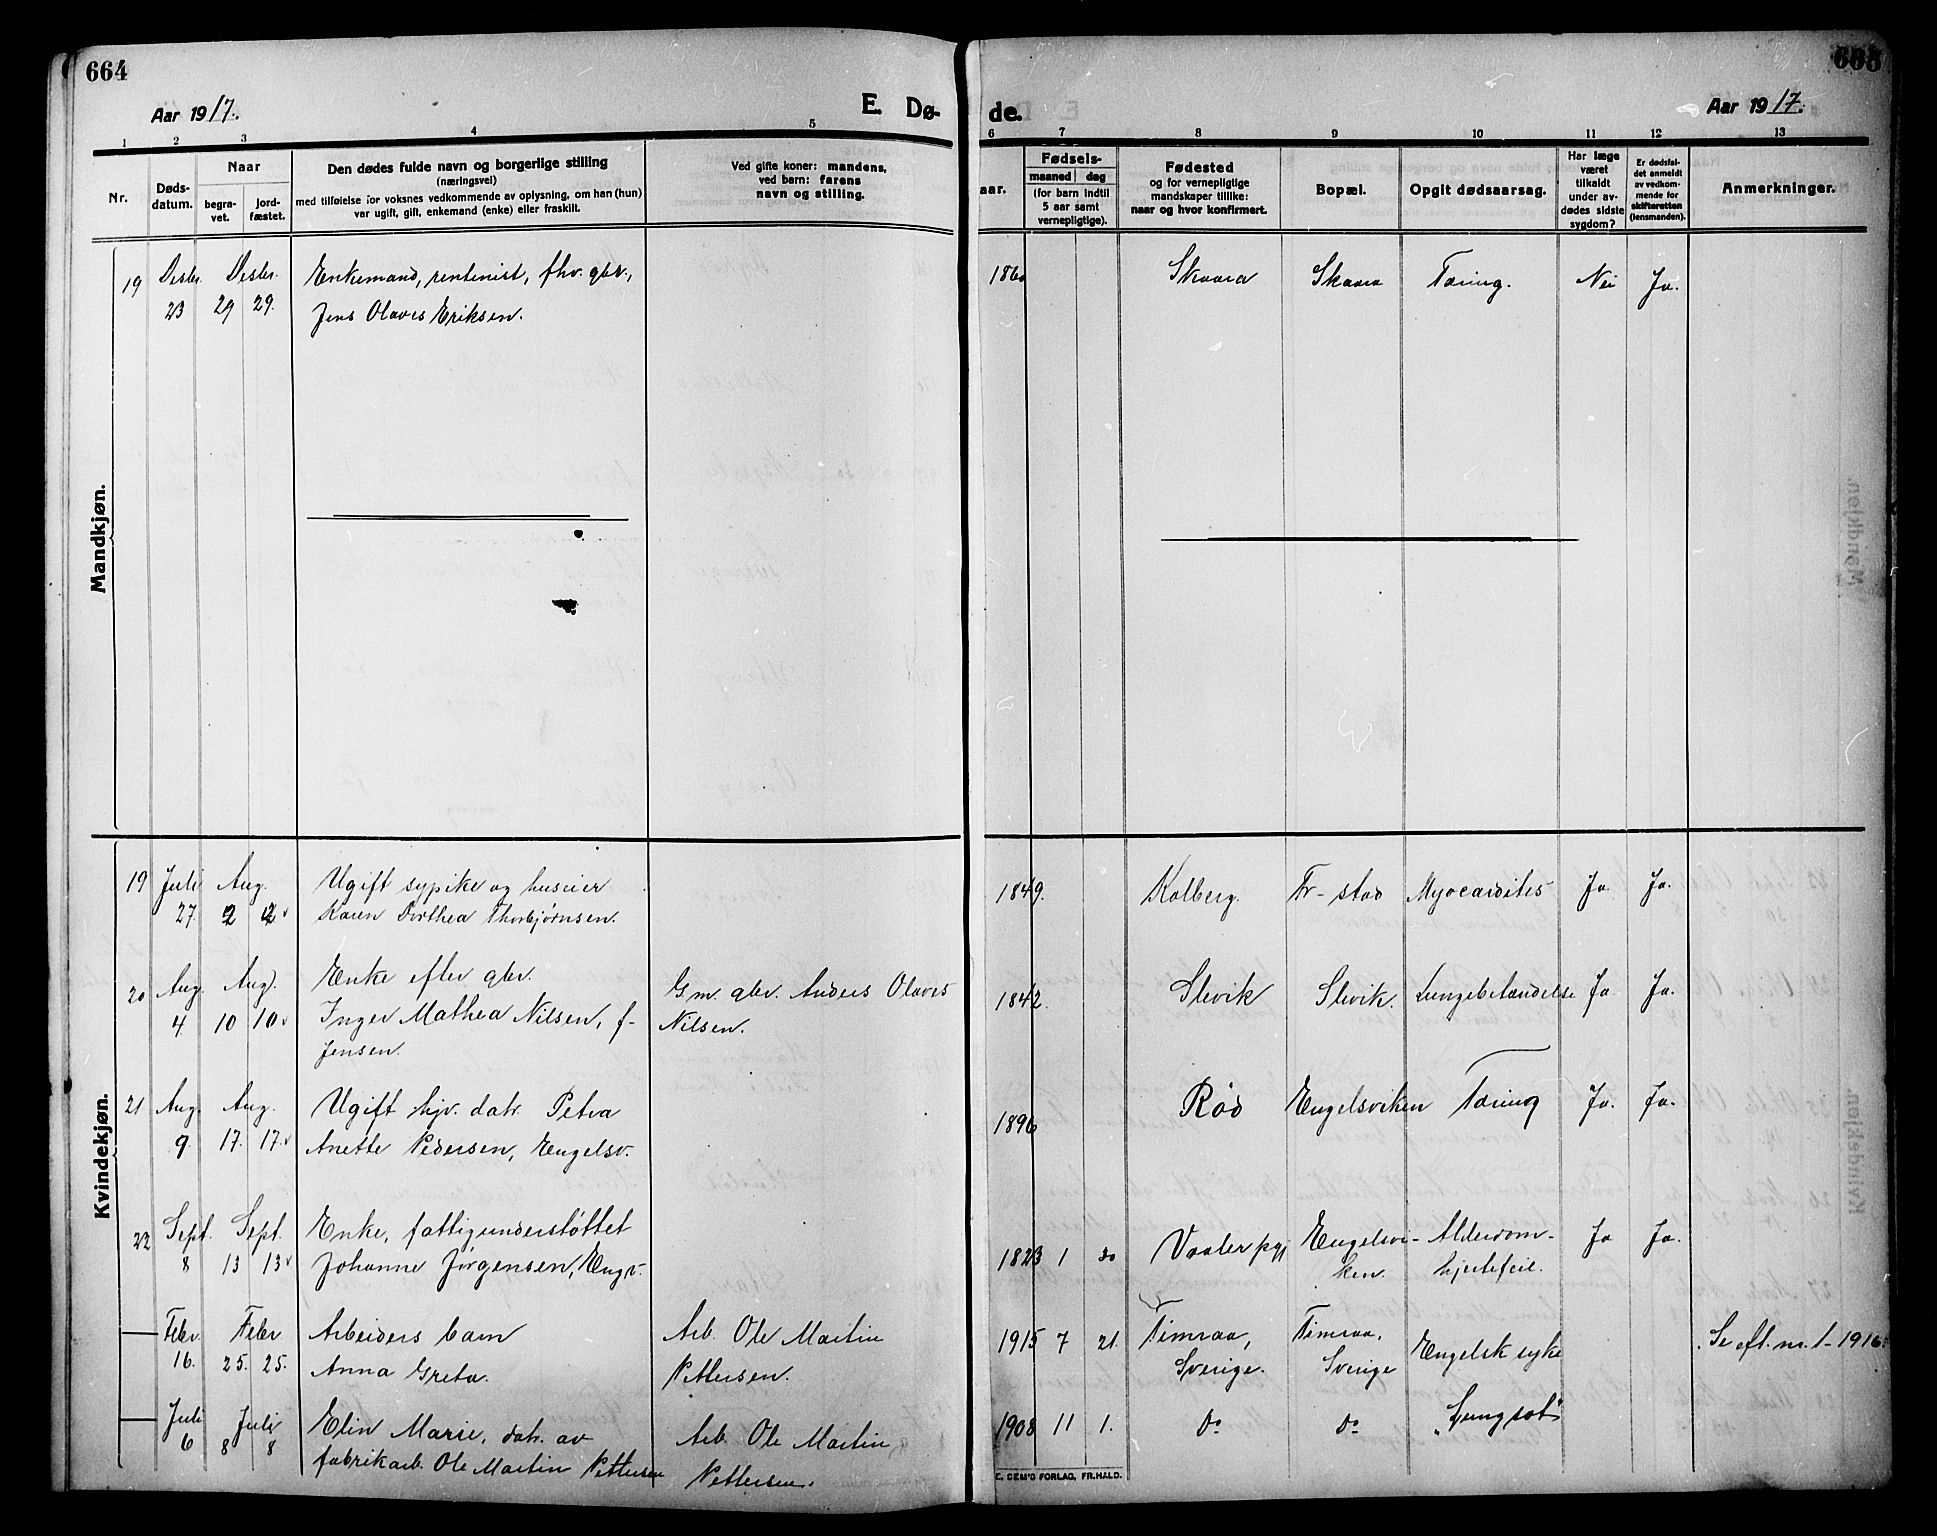 664
Aar 1917.
E. Dø-
1 2 3 4 5
Nr.
Døds-
datum.
Naar
begra-
vet.
jord-
fæstet.
Den dødes fulde navn og borgerlige stilling
(næringsvei)
med tilføielse for voksnes vedkommende av oplysning, om han (hun)
var ugift, gift, enkemand (enke) eller fraskilt.
Ved gifte koner: mandens,
ved barn: farens
navn og stilling.
Mandkjøn.
19 Desbr. Desbr. Enkemand, rentenist, fhv. gbr.,
23 29 29. Jens Olaves Eriksen.
Kvindekjøn.
19 Juli Aug. Ugift sypike og huseier
27. 2 2 Karen Dorthea Thorbjørnsen.
20 Aug. Aug. Enke efter gbr. G.m. gbr. Anders Olaves
4 10 10 Inger Mathea Nilsen, f- Nilsen.
Jensen.
21 Aug. Aug. Ugift hjv. datr. Petra
9 17. 17. Anette Pedersen, Engelsv.
22 Sept. Sept. Enke, fattigunderstøttet
8 13 13 Johanne Jørgensen, Engv.
Febr. Febr. Arbeiders barn Arb. Ole Martin
16. 25. 25. Anna Greta. Pettersen.
Juli Juli Elin Marie, datr. av Arb. Ole Martin
6 8 8 fabrikarb. Ole Martin Pettersen Pettersen.
de.
Aar 1917.
6 7 8 9 10 11 12 13
aar.
Fødsels-
maaned dag
(for barn indtil
5 aar samt
vernepligtige).
Fødested
og for vernepligtige
mandskaper tillike:
naar og hvor konfirmert.
Bopæl.
Opgit dødsaarsag.
Har læge
været
tilkaldt
under av-
dødes sidste
sygdom?
Er dødsfal-
det anmeldt
av vedkom-
mende for
skifteretten
(lensmanden).
Anmerkninger.
1860 Skaara Skaara Tæring. Nei Ja.
1849. Kolberg. Fr-stad Myocardites Ja. Ja.
1842. Slevik Slevik. Lungebetændelse Ja Ja.
1896 Rød Engelsviken Tæring Ja. Ja.
1823 1 30 Vaaler pgj Engelsvi- Alderdom- Ja Ja.
ken. hjertefeil.
1915 7 21. Timraa, Timraa, Engelsk syke Se eft. nr. 1-1916.
Sverige. Sverige
1908 11 1. Do Do "Lungsot"
E. GEM'S FORLAG, FR.HALD.